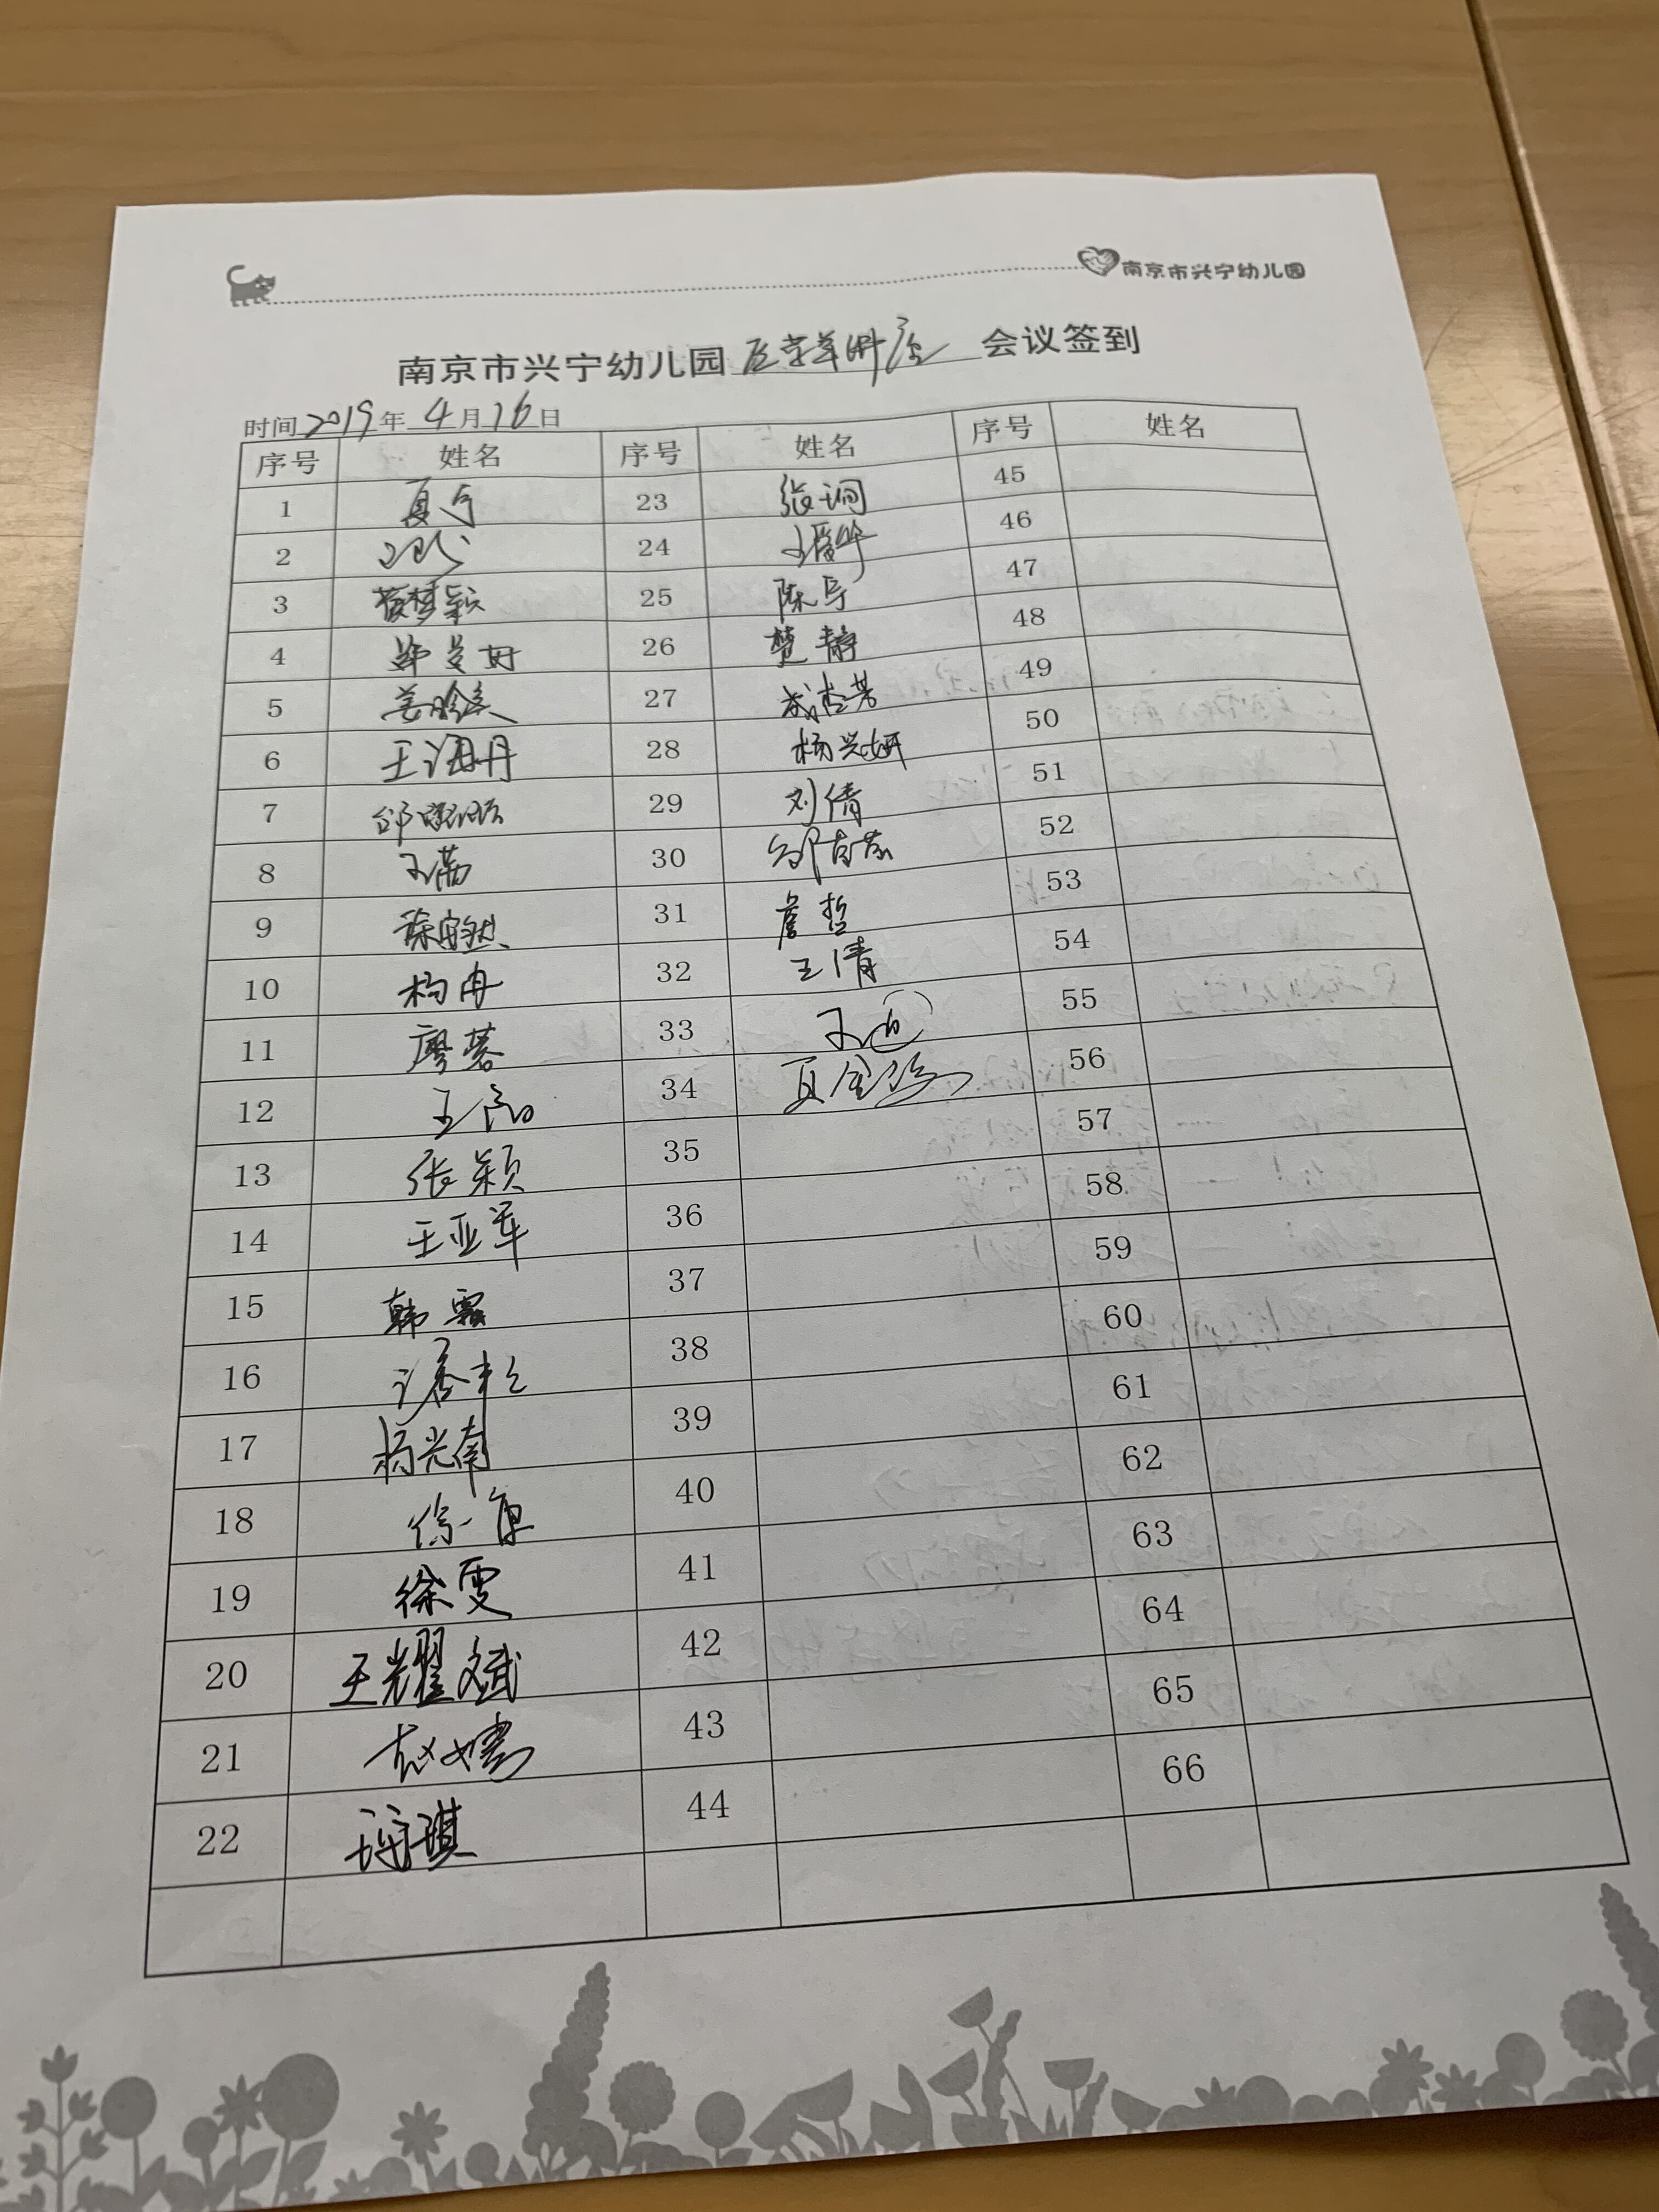 南京市兴宁幼儿园
南京市兴宁幼儿园 会议签到
时间 2019 年 4 月 16 日
序号 姓名 序号 姓名 序号 姓名
1 夏宁 23 张润 45
2 24 王爱华 46
3 25 陈 47
4 26 楚静 48
5 27 49
6 王海丹 28 杨兴妍 50
7 29 刘倩 51
8 30 52
9 31 詹哲 53
10 杨冉 32 王倩 54
11 廖蓉 33 王 55
12 王 34 夏 56
13 张颖 35 57
14 王亚军 36 58
15 韩霜 37 59
16 38 60
17 杨光南 39 61
18 徐 40 62
19 徐雯 41 63
20 王耀斌 42 64
21 赵 43 65
22 琪 44 66